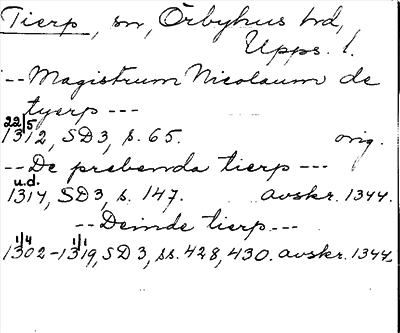 Tierp, sn, Örbyhus hd,
Upps. l.
-- Magistrum Nicolaum de
tyerp ---
22/5
1312, SD3, s. 65. orig.
-- De prebenda tierp ---
u.d.
1314, SD3, s. 147. avskr. 1344.
-- Deinde tierp ---
1/4 1/1
1302-1319, SD3, ss. 428, 430. avskr. 1344.